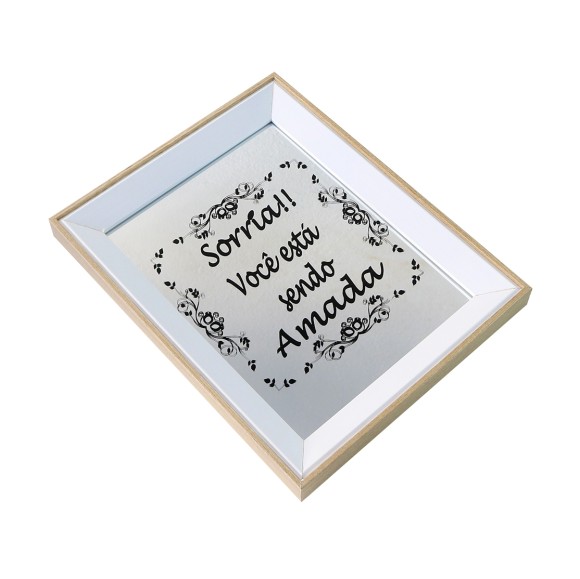 Sorria!!
Você está
sendo
Amada